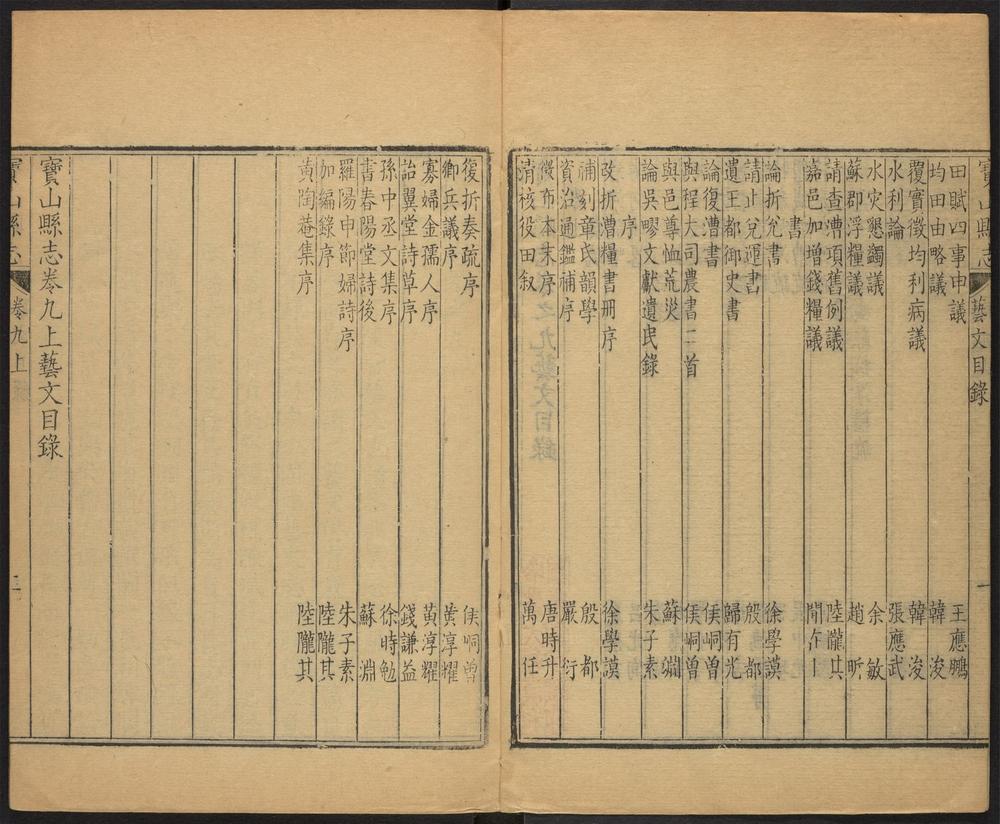 寶山縣志 藝文目錄 一
田賦四事申議 王應鵬
均田由略議 韓浚
覆實徵均利病議 韓浚
水利論 張應武
水灾懇蠲議 余敏
蘇郡浮糧議 趙昕
請查漕項舊例議 陸隴其
嘉邑加增錢糧議 上
書
論折兌書 徐學謨
請止兌運書 殷都
遺王都御史書 歸有光
論復漕書 侯峒曾
與程大司農書二首 侯峒曾
與邑尊恤荒災 蘇淵
論吳疁文獻遺民錄 朱子素
序
改折漕糧書冊序 徐學謨
浦刻章氏韻學 殷都
資治通鑑補序 嚴衍
布本末序 唐時升
清核役田叙 萬任
復折奏疏序 侯峒曾
鄉兵議序 黃淳耀
寡婦金孺人序 黃淳耀
詒翼堂詩草序 錢謙益
孫中丞文集序 徐時勉
書春陽堂詩後 蘇淵
羅陽申節婦詩序 朱子素
加編錄序 陸隴其
黃陶菴集序 陸隴其
寶山縣志卷九上藝文目錄
寶山縣志 卷九上 三